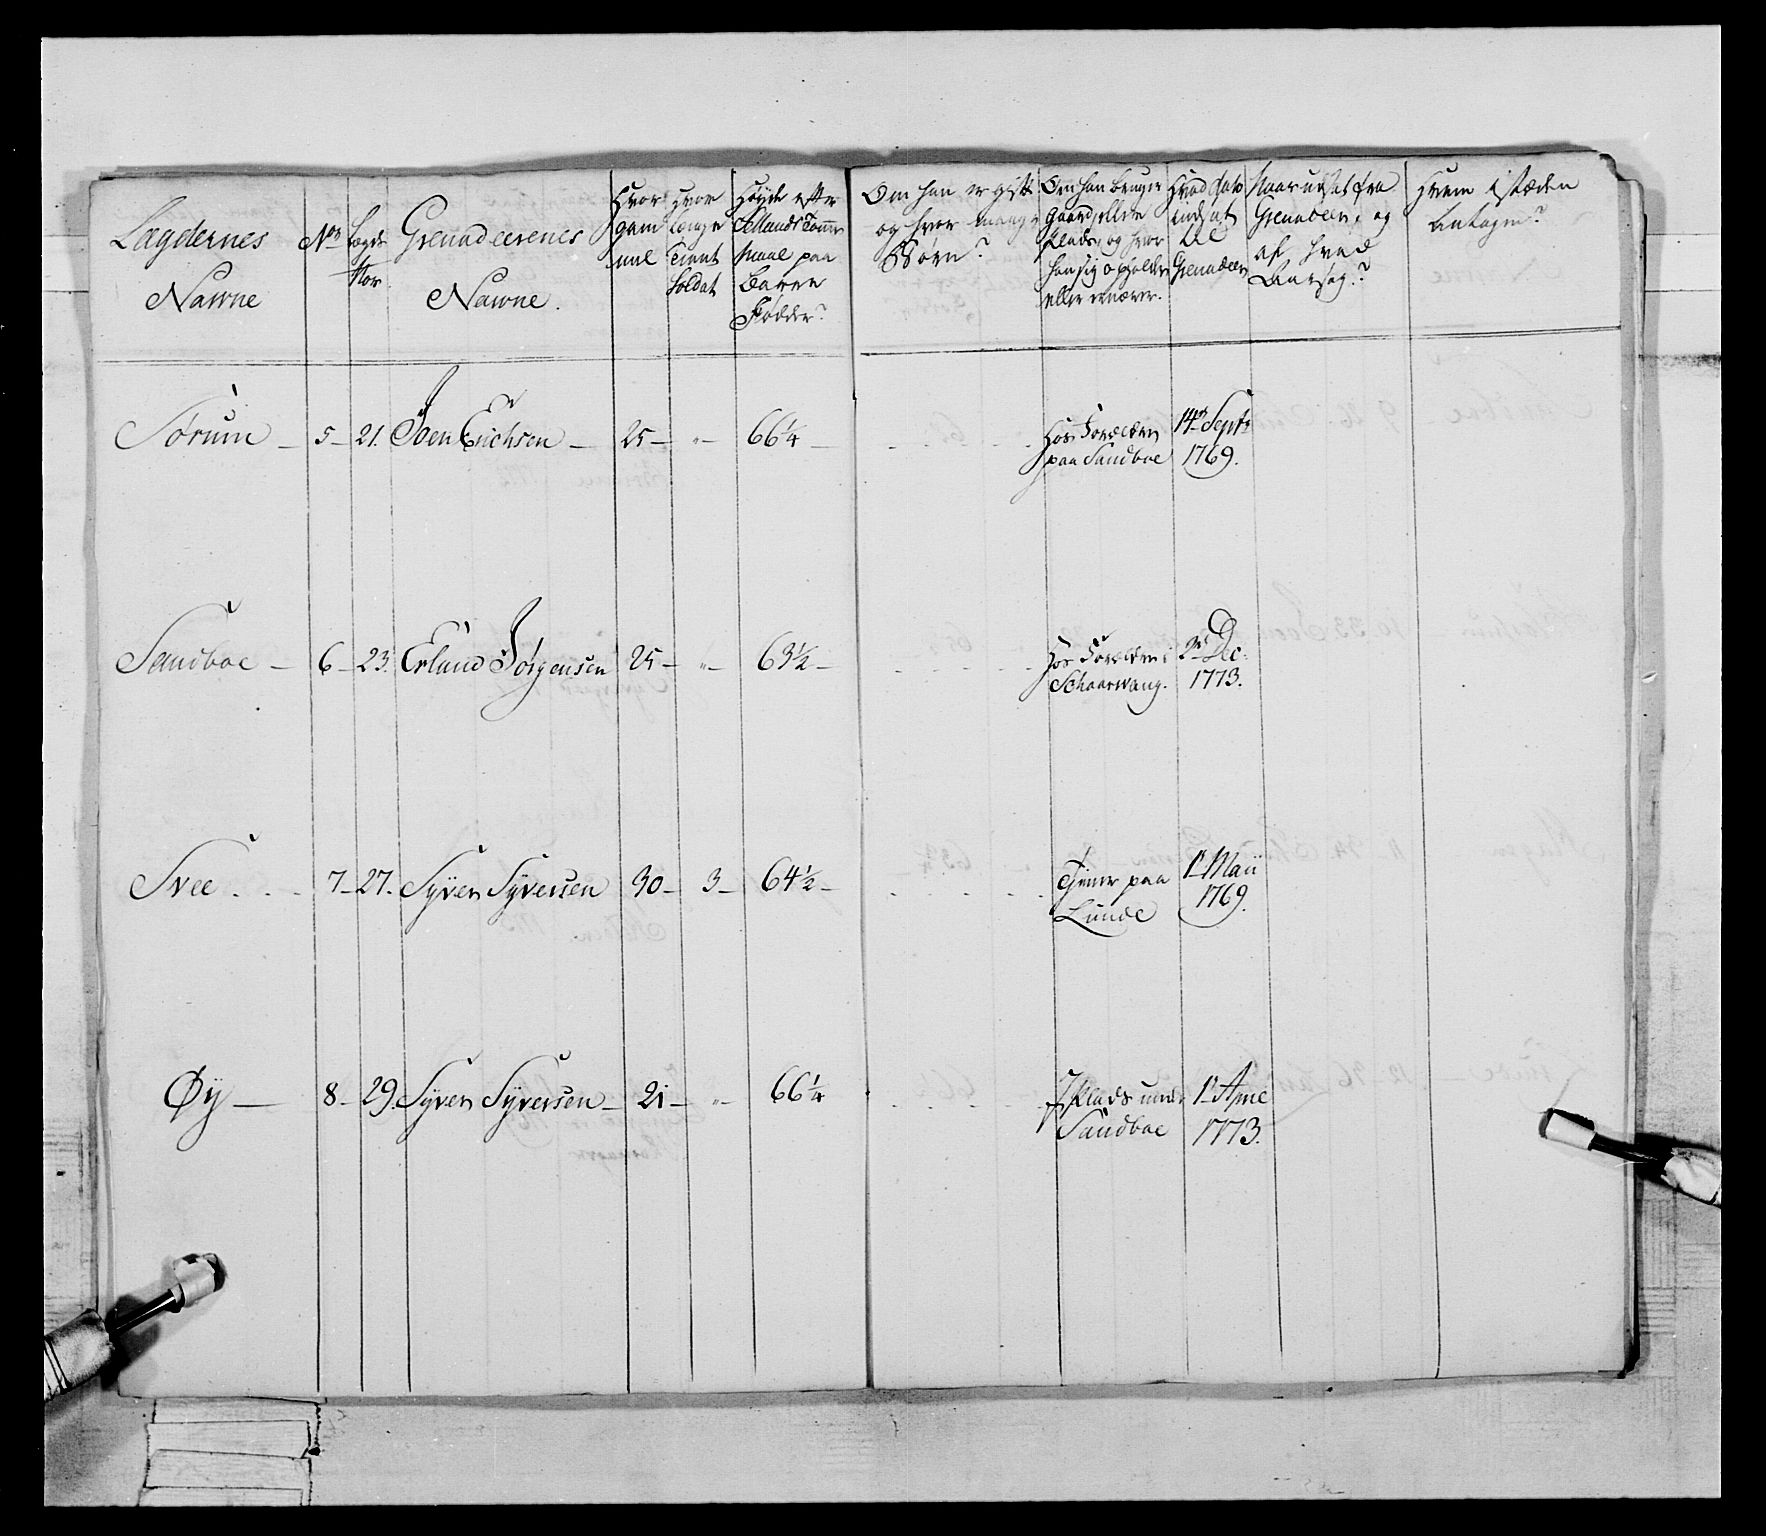 Lægdernes Nawne
Nos
Lægds Nor
Grenadeerenes Nawne.
Hvor gam mel
Hvor længe Tient Soldat
Høyde efter Sellands Tomme Maal paa Barre Fødder?
Om han er gift og hvor mange Børn?
Om han bruger Gaard, eller Plads, og hvor han sig opholder eller ernærer.
Hvad dato indsat til Grenadeer
Naar udsat fra Grenadeer, og af hvad Aarsag?
Hvem i stæden antagen?
Sørum – 5 – 21. Joen Erichsen – 25 – „ – 66¼ – Hos Forældre paa Sandboe 14de Septr 1769.
Sandboe – 6 – 23. Erland Jørgensen 25 – „ – 63½ – Hos Forældre i Schaarwang. 2de Dec: 1773.
Svee . . . 7 – 27. Syver Syversen 30 – 3 – 64½ – Tjener paa Lunde 1te Maii 1769.
Øy — 8 – 29. Syver Syversen – 21 – „ – 66¼ Plads under Sandboe 1te April 1773.